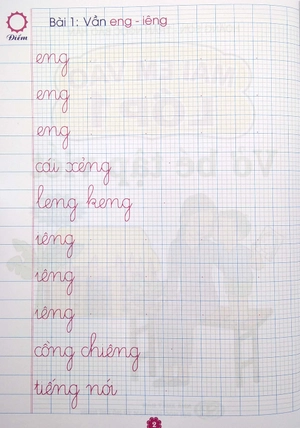 Bài 1: Vần eng - iêng
Điểm
eng
eng
eng
cái xẻng
leng keng
iêng
iêng
iêng
cồng chiêng
tiếng nói
2